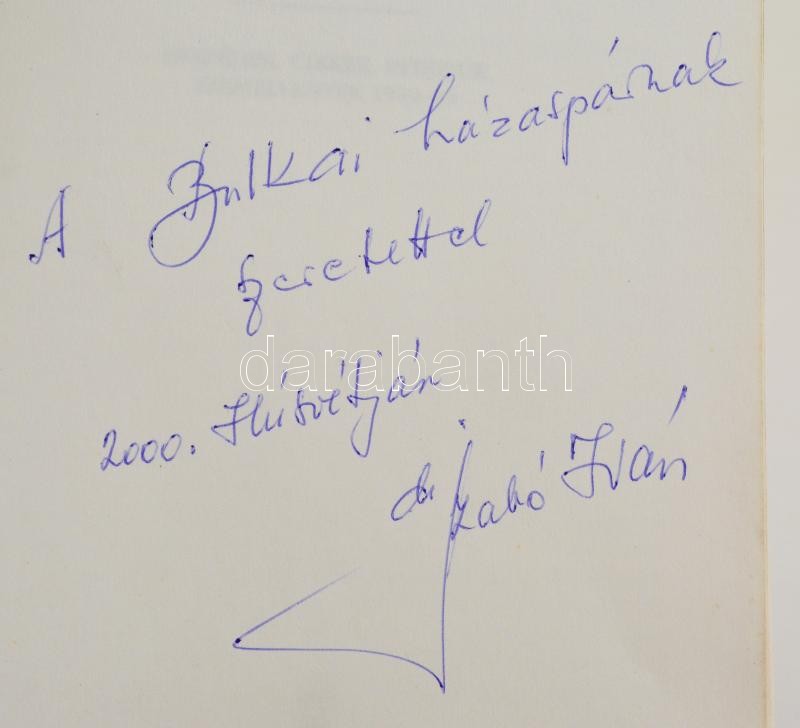 A Bulkai házaspárnak
szeretettel
darabanth
2000. Húsvétján
dr Szabó Iván